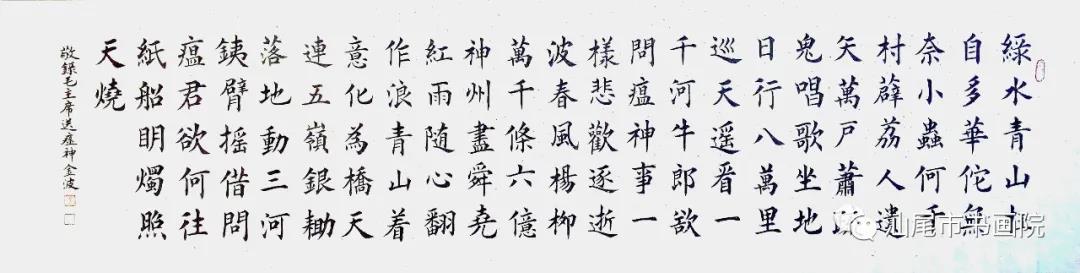 綠水青山
自多華佗無
奈小蟲何千
村薜荔人遺
矢萬戶蕭
鬼唱歌坐地
日行八萬里
巡天遥看一
千河牛郎欲
問瘟神事一
樣悲歡逐逝
波春風楊柳
萬千條六億
神州盡舜堯
紅雨随心翻
作浪青山着
意化為橋天
連五嶺銀鋤
落地動三河
銕臂摇借問
瘟君欲何往
紙船明燭照
天燒
敬錄毛主席送瘟神金波
汕尾市书画院